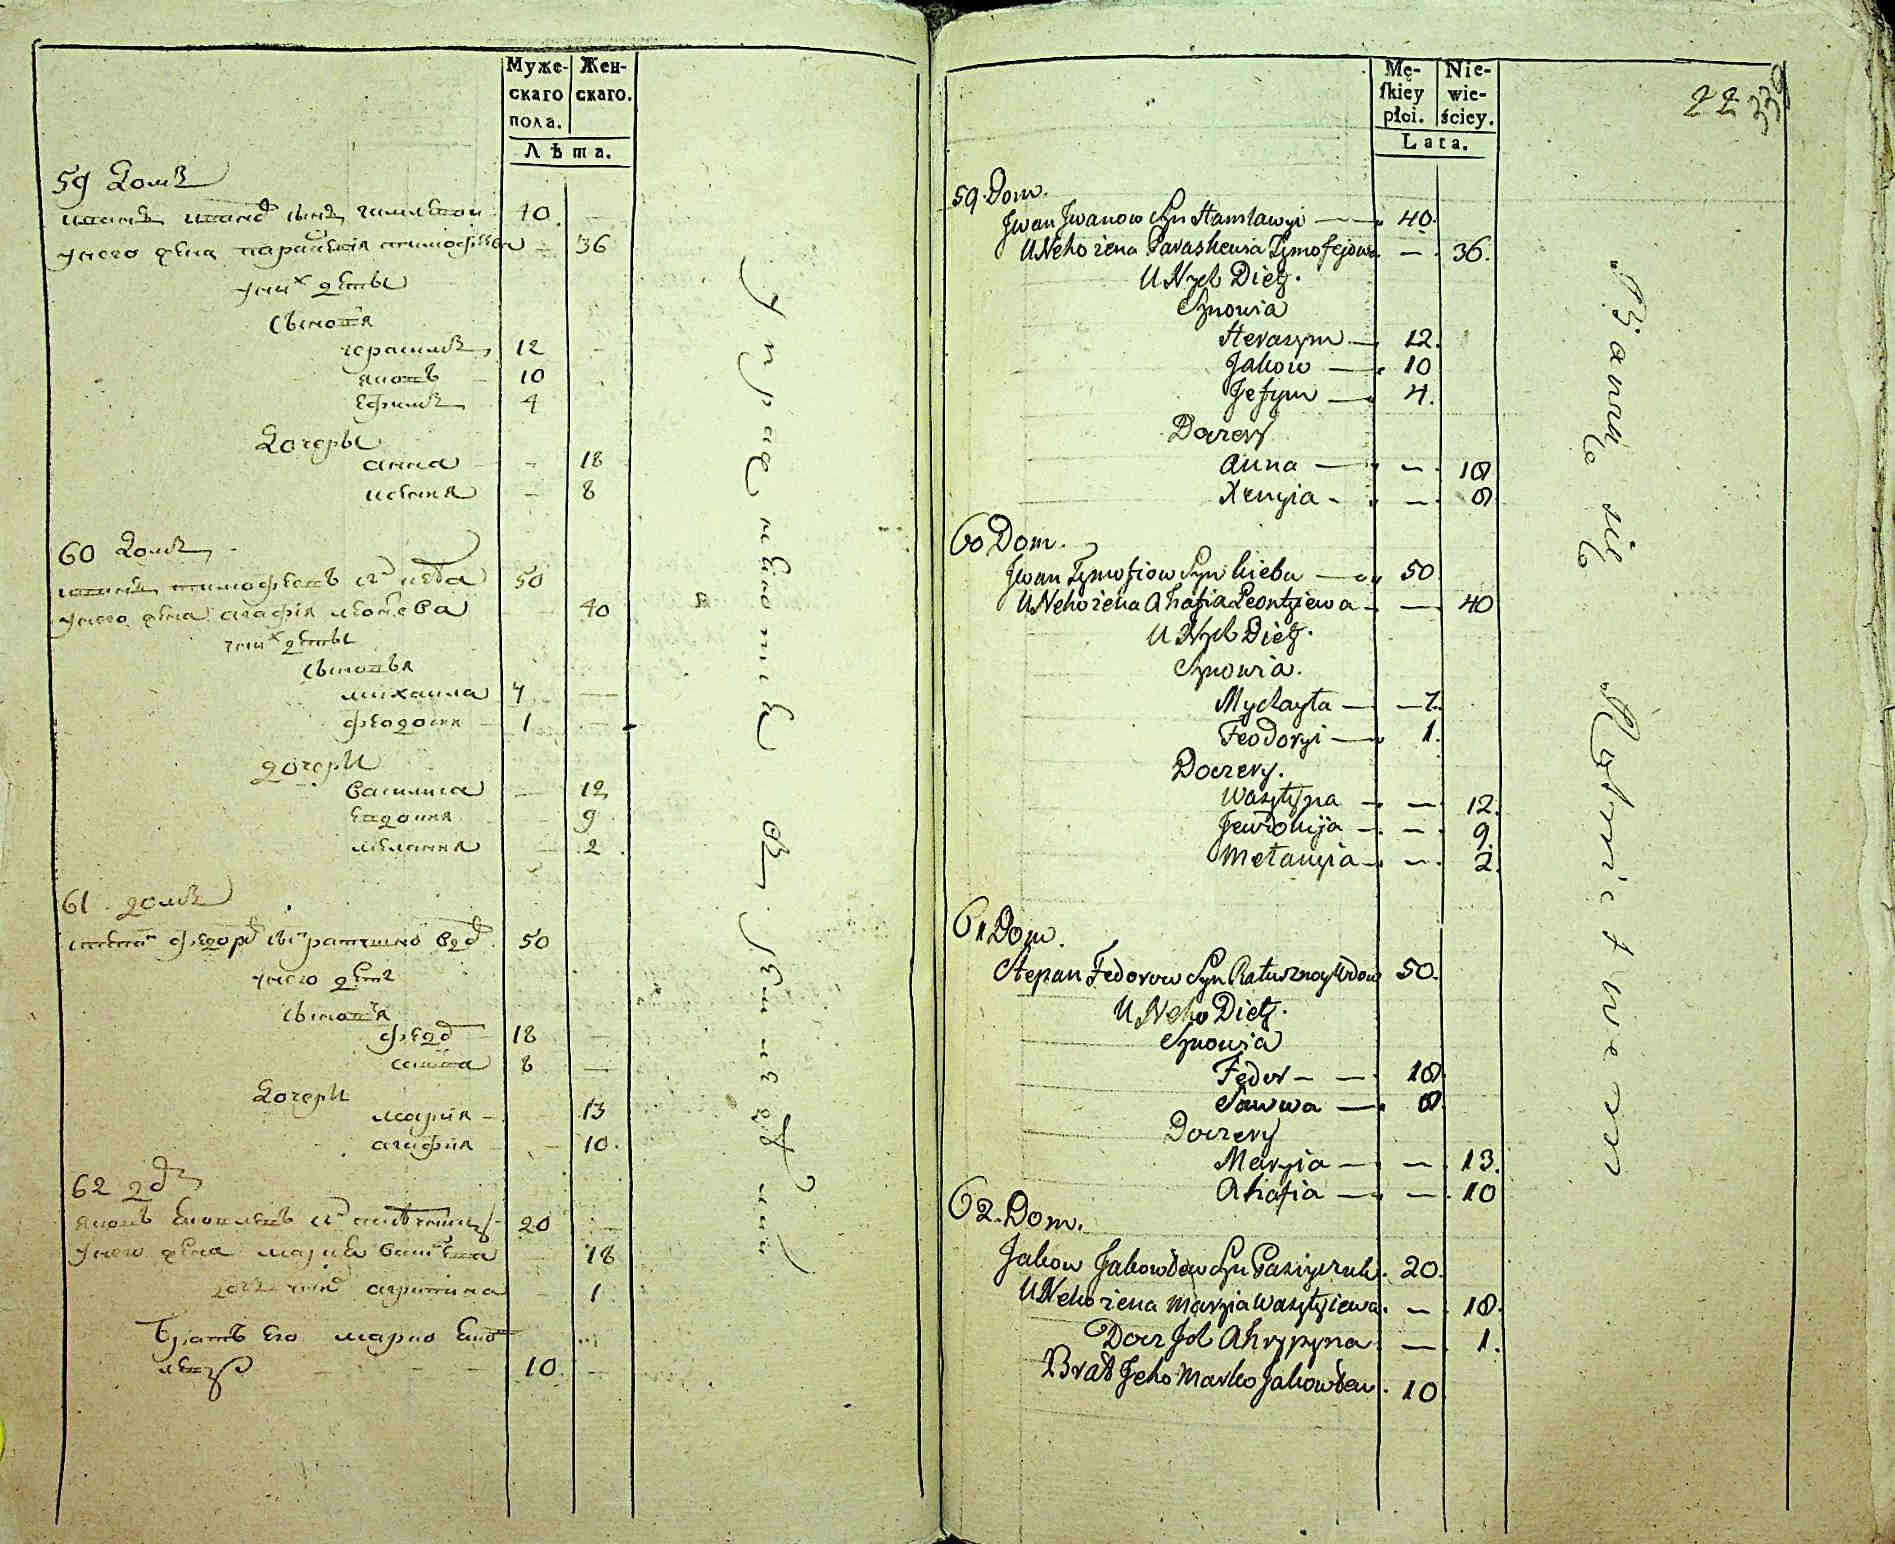 Муже-
скаго
пола.
Жен-
скаго.
Лѣта.
59 домъ
иванъ иванов сынъ 40.
у него жена параскевия тимофѣева 36
у них дѣты
сыновя
герасимъ 12
яковъ 10
ефимъ 4
дочеры
анна 18
ксения 8
60 домъ
иванъ тимофеевъ сн 50
у него жена агафия 40
у них дѣты
сыновья
михаила 7
феодосия 1
дочери
василиса 12
евдокия 9
мелания 2
61 домъ
степан федор сын 50
у него дѣти
сыновя
федор 18
савва 8
дочери
мария 13
агафия 10.
62 д
яковъ яковлевъ сн 20
у него жена мария 18
дочь agрипина 1
братъ его марко 
10
упражняются въ земледелии
Mę-
ſkiey
płci.
Nie-
wie-
ściey.
Lata.
22
339
59. Dom.
Jwan Jwanow Syn Stanisławyi — 40.
U Neho żena Paraskewia Tymofejowa — 36.
U Nych Diety.
Synowia
Herasym — 12.
Jakow — 10
Jefym — 4.
Doczery
Anna — — 18
Xenyia — — 8
60 Dom.
Jwan Tymofiow Syn hleba — 50
U Neho żena Ahafia Leontyiewa — — 40
U Nych Diety.
Synowia.
Mychayła — 7.
Feodoryi — 1.
Doczery.
Wasylyna — — 12.
Jewdokija — — 9.
Mełanyia — — 2.
61 Dom.
Stepan Fedorow Syn Ratusznoy Wdow 50.
U Neho Diety.
Synowia
Fedor — — 18
Sawwa — 8
Doczery
Maryia — — 13.
Ahafia — — 10
62. Dom.
Jakow Jakowlew Syn 20.
U Neho żena Maryia Wasylyiewa — 18.
Docz Jch Ahrypyna — 1.
Brat Jeho Marko Jakowlew. 10
Bawią się Rolnictwem